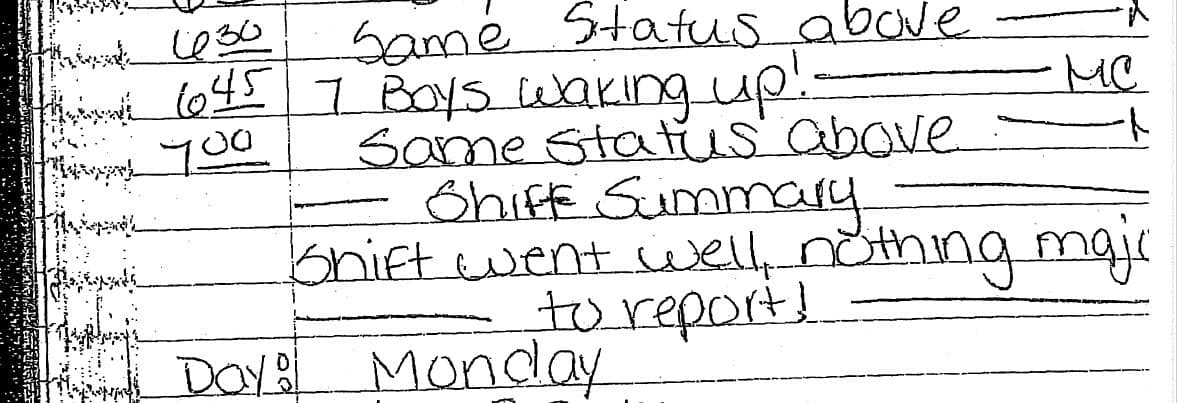 630 Same Status above
645 7 Boys waking up! MC
700 Same status above
Shift Summary
Shift went well, nothing majo
to report!
Day: Monday